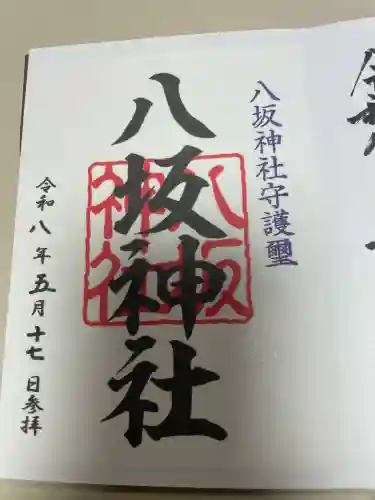 八坂神社守護璽
八坂神社
八坂
神社
令和八年五月十七日参拝
令和